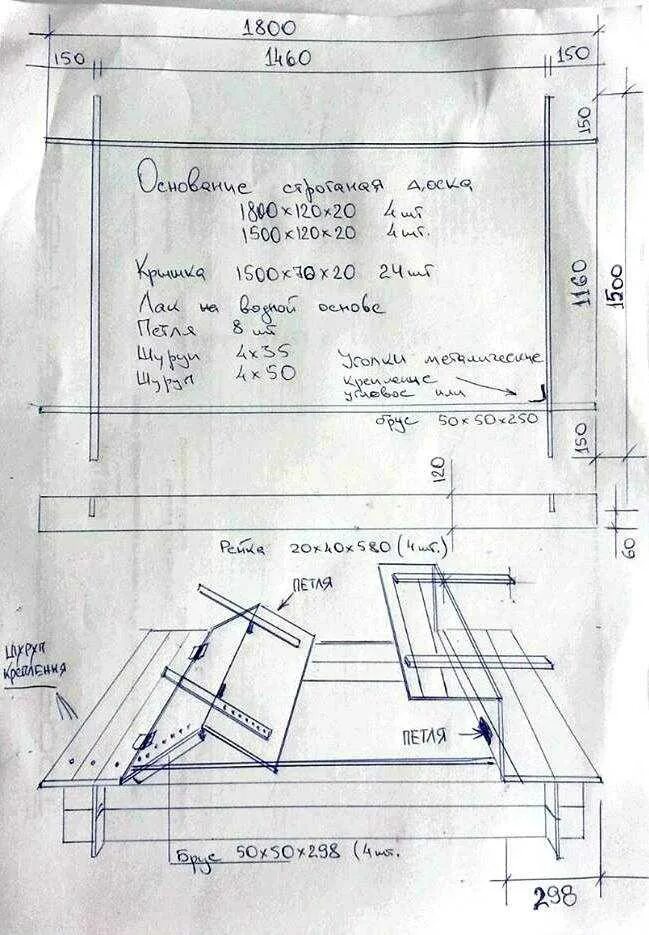 1800
150 1460 150
150
Основание строганая доска
1800×120×20 4 шт
1500×120×20 4 шт.
Крышка 1500×70×20 24 шт
Лак на водной основе
Петля 8 шт
Шуруп 4×35
Шуруп 4×50
Уголки металические
крепление
угловое или
брус 50×50×250
1160
1500
150
120
60
Рейка 20×40×580 (4 шт.)
ПЕТЛЯ
ШУРУП
КРЕПЛЕНИЯ
ПЕТЛЯ
Брус 50×50×298 (4 шт.
298